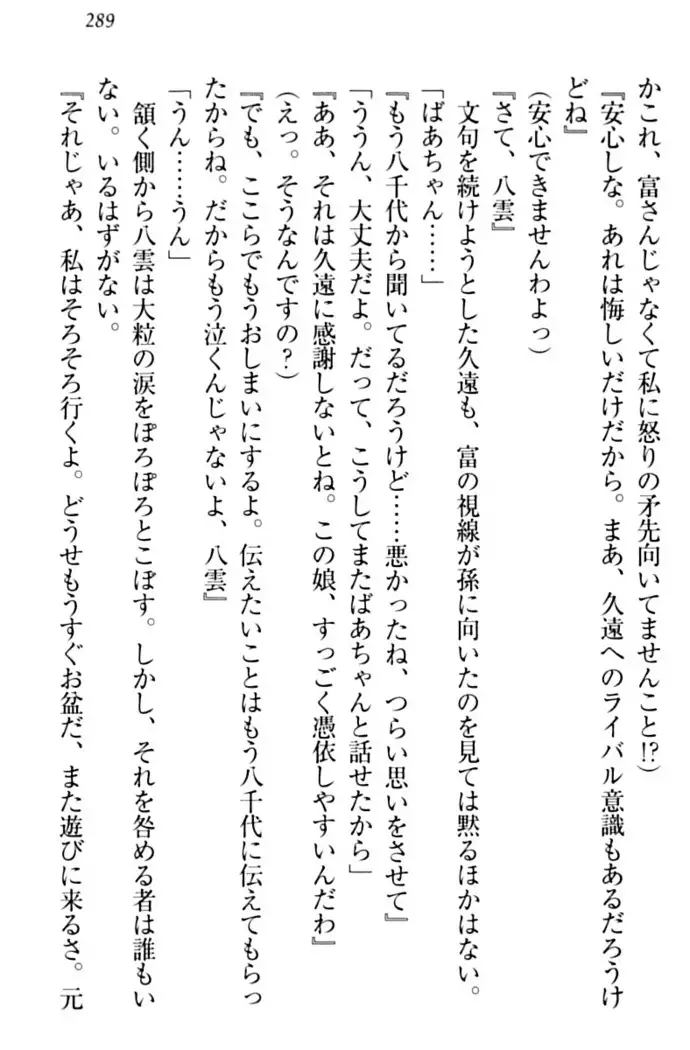 289
かこれ、富さんじゃなくて私に怒りの矛先向いてませんこと!?）
『安心しな。あれは悔しいだけだから。まあ、久遠へのライバル意識もあるだろうけ
どね』
（安心できませんわよっ）
『さて、八雲』
　文句を続けようとした久遠も、富の視線が孫に向いたのを見ては黙るほかはない。
「ばあちゃん……」
『もう八千代から聞いてるだろうけど……悪かったね、つらい思いをさせて』
「ううん、大丈夫だよ。だって、こうしてまたばあちゃんと話せたから」
『ああ、それは久遠に感謝しないとね。この娘、すっごく憑依しやすいんだわ』
（えっ。そうなんですの？）
『でも、ここらでもうおしまいにするよ。伝えたいことはもう八千代に伝えてもらっ
たからね。だからもう泣くんじゃないよ、八雲』
「うん……うん」
　頷く側から八雲は大粒の涙をぽろぽろとこぼす。しかし、それを咎める者は誰もい
ない。いるはずがない。
『それじゃあ、私はそろそろ行くよ。どうせもうすぐお盆だ、また遊びに来るさ。元